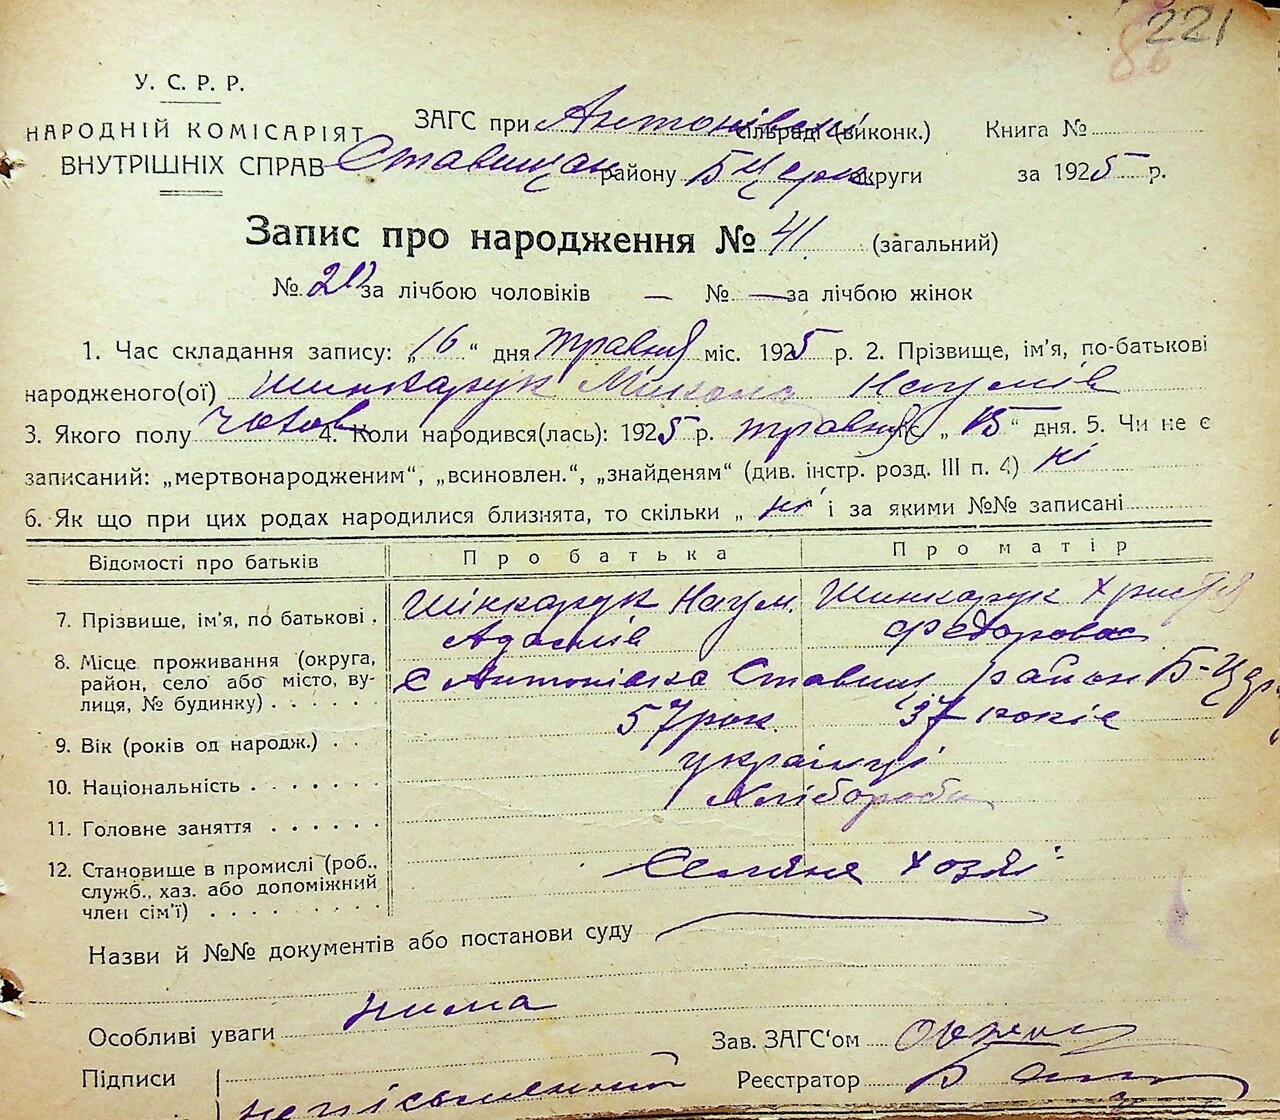 221
У. С. Р. Р.
НАРОДНІЙ КОМІСАРІЯТ
ВНУТРІШНІХ СПРАВ
ЗАГС при Антонівскі сільраді (виконк.) Книга №
Ставищан району Б Церк округи за 1925 р.
Запис про народження № 41. (загальний)
№ за лічбою чоловіків — № — за лічбою жінок
1. Час складання запису: „16“ дня травня міс. 1925 р. 2. Прізвище, ім'я, по-батькові
народженого(ої) Шинкарук Микола Наумів
3. Якого полу чолов 4. Коли народився(лась): 1925 р. травня міс „15“ дня. 5. Чи не є
записаний: „мертвонародженим“, „всиновлен.“, „знайденям“ (див. інстр. розд. III п. 4) ні
6. Як що при цих родах народилися близнята, то скільки „ні“ і за якими №№ записані
Відомості про батьків Про батька Про матір
7. Прізвище, ім'я, по батькові . Шінкарук Наум. Шинкарук Христя
Адамів Федорова
8. Місце проживання (округа,
район, село або місто, ву-
лиця, № будинку) . . . . . . с Антонівка Ставищ район Б-Церк
9. Вік (років од народж.) . . . 57 рок. 37 років
10. Національність . . . . . . . українці
11. Головне заняття . . . . . . Хлібороби
12. Становище в промислі (роб.,
служб., хаз. або допоміжний
член сім'ї) . . . . . . . . . Селяне хозяї
Назви й №№ документів або постанови суду
Особливі уваги нима
Зав. ЗАГС'ом
Підписи неписьменний
Реєстратор